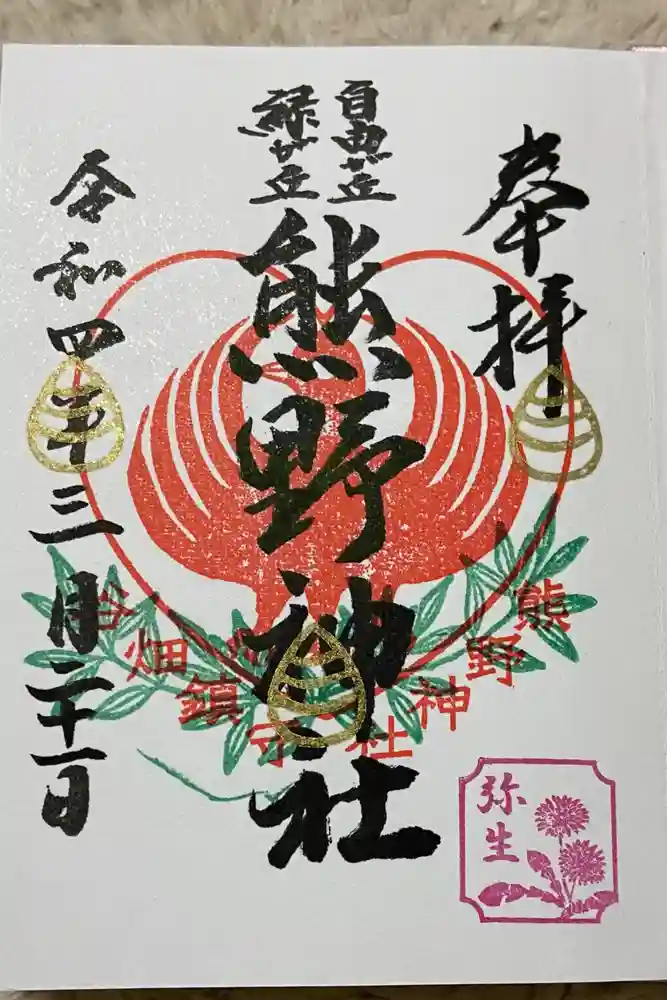 奉拝
自由が丘
緑が丘
熊野神社
令和四年三月二十一日
熊野神社
谷畑鎮守
弥生